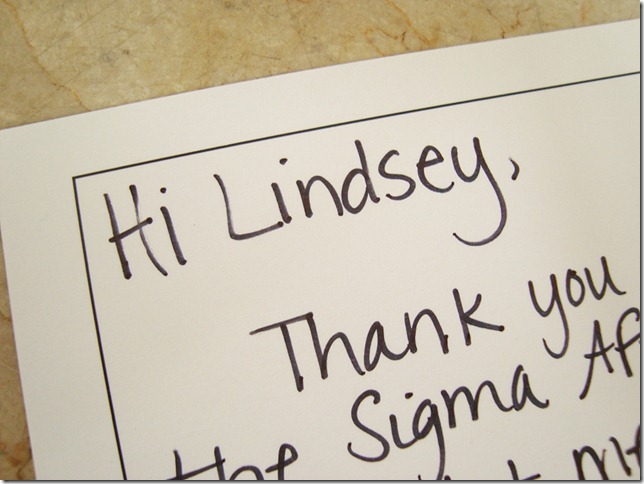 Hi Lindsey,
Thank you
the Sigma Af